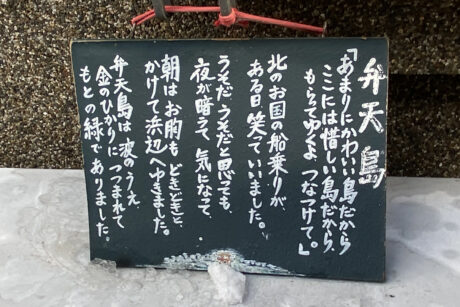 弁天島
「あまりにかわいい島だから
ここには惜しい島だから、
もらってゆくよ、つなつけて。」
北のお国の船乗りが、
ある日、笑っていいました。
うそだ、うそだと思っても、
夜が暗うて、気になって、
朝はお胸も、どきどきと、
かけて浜辺へゆきました。
弁天島は波のうえ、
金のひかりにつつまれて
もとの緑でありました。